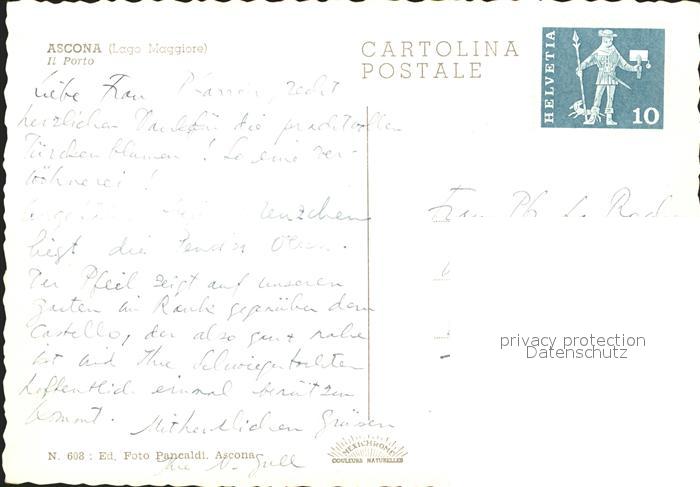 ASCONA (Lago Maggiore)
Il Porto
CARTOLINA
POSTALE
HELVETIA
10
Liebe Frau recht
herzlichen Dank für die prachtvollen
Türckenblumen! So eine Ver-
wöhnerei!
liegt die
Der Pfeil zeigt auf unseren
Garten gegenüber dem
Castello, der also ganz nahe
ist und Ihre Schwiegertochter
hoffentlich einmal benützen
kommt. Mit herzlichen Grüssen
Ihre
Frau
privacy protection
Datenschutz
N. 608 : Ed. Foto Pancaldi. Ascona
MEXICHROME
COULEURS NATURELLES